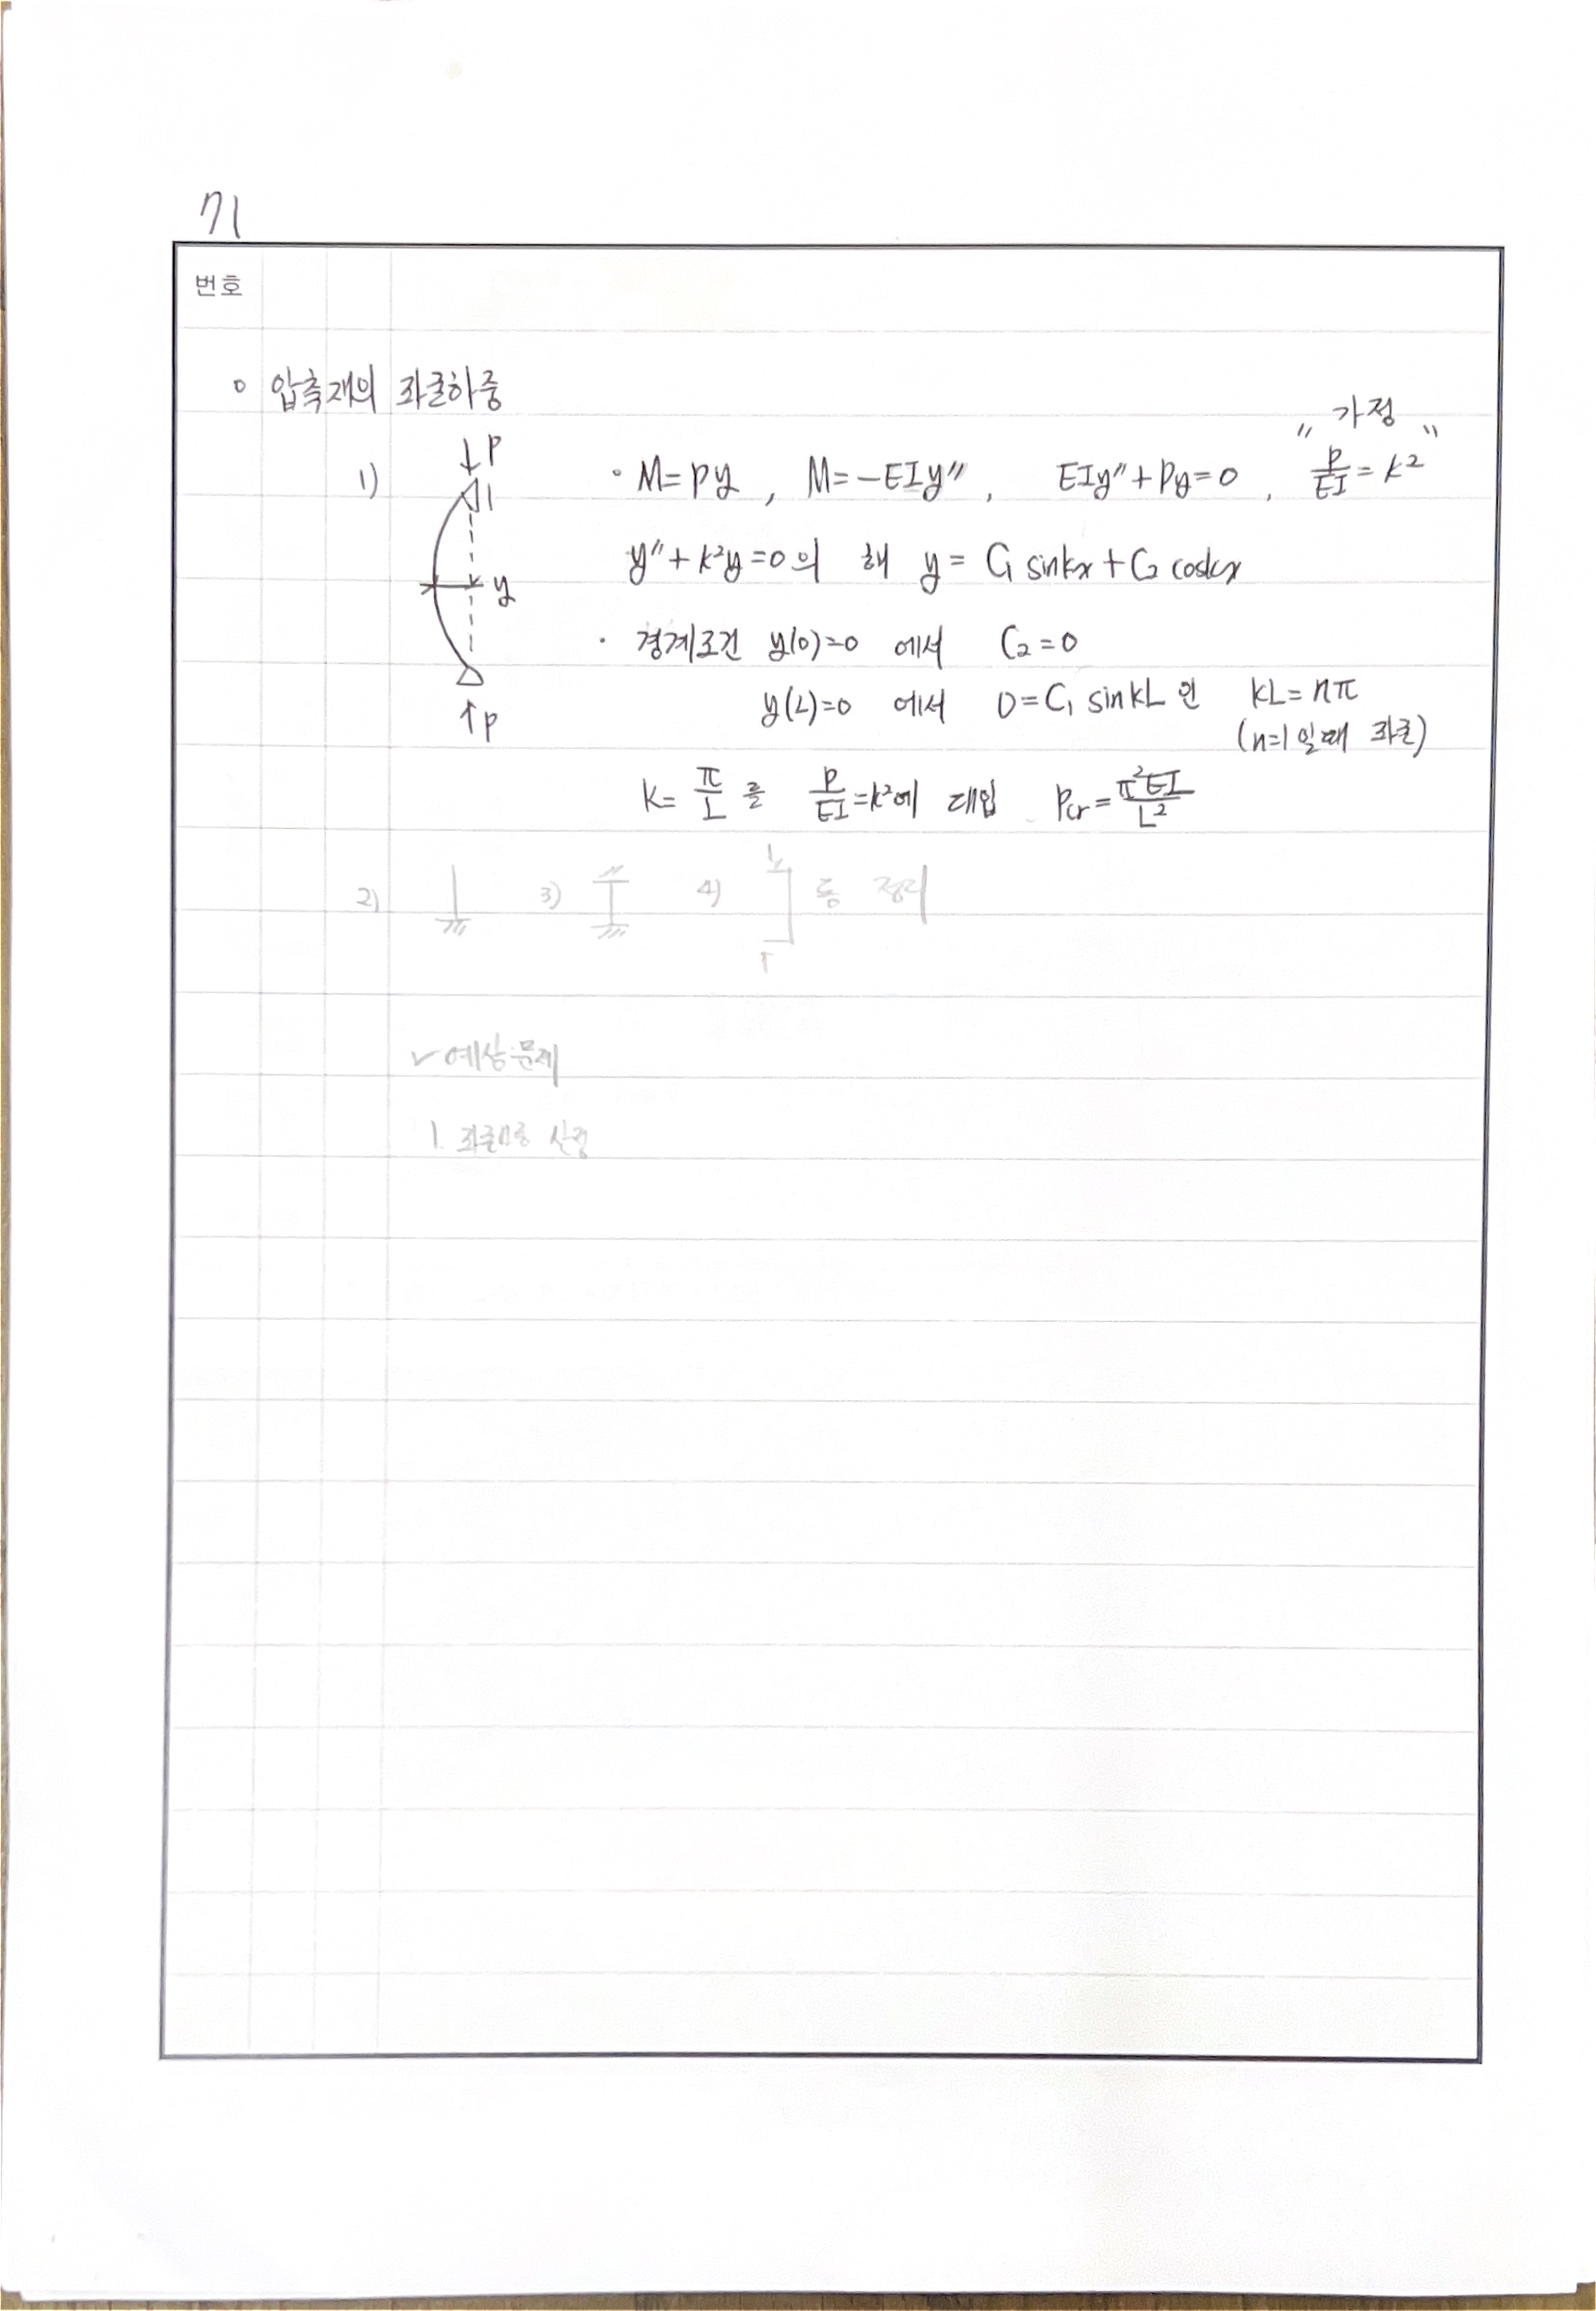 71
번호
○ 압축재의 좌굴하중
1) ↓P · M=Py , M=-EIy'' , EIy''+Py=0 , "가정" P/EI = k²
y y''+k²y=0의 해 y = C₁ sinkx + C₂ coskx
· 경계조건 y(0)=0 에서 C₂=0
↑P y(L)=0 에서 0=C₁ sinkL 인 kL=nπ
(n=1일때 좌굴)
k= π/L 를 P/EI=k²에 대입 Pcr= π²EI/L²
2) 3) 4) 등 정리
✓예상문제
1. 좌굴하중 산정